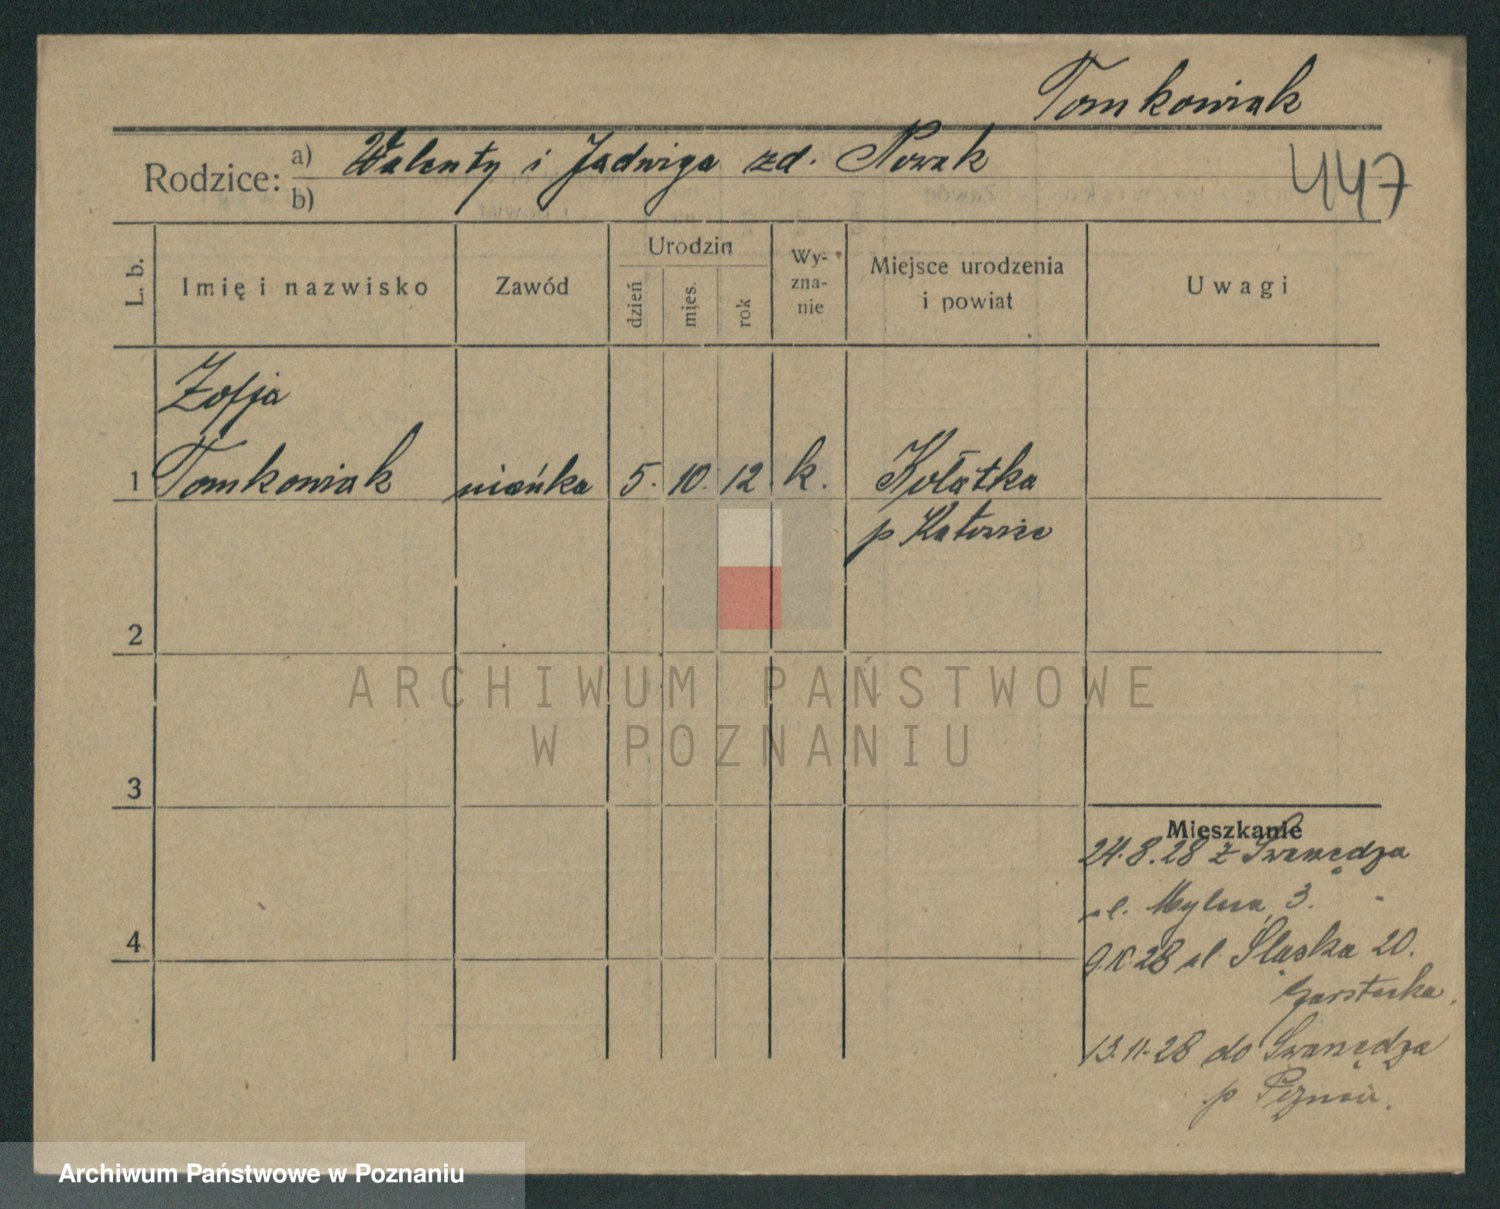 Tomkowiak
Rodzice: a) Walenty i Jadwiga zd. Nowak
b)
447
L. b.
Imię i nazwisko
Zawód
Urodzin
dzień
mies.
rok
Wy-
zna-
nie
Miejsce urodzenia
i powiat
Uwagi
Zofja
1 Tomkowiak niańka 5. 10. 12 k. Kołatka
p Katowice
2
3
4
Mieszkanie
24.8.28 z Swarzędza
ul. Mylna 3.
9.10.28 ul. Śląska 20.
13.11.28 do Swarzędza
p Poznań.
ARCHIWUM PAŃSTWOWE
W POZNANIU
Archiwum Państwowe w Poznaniu